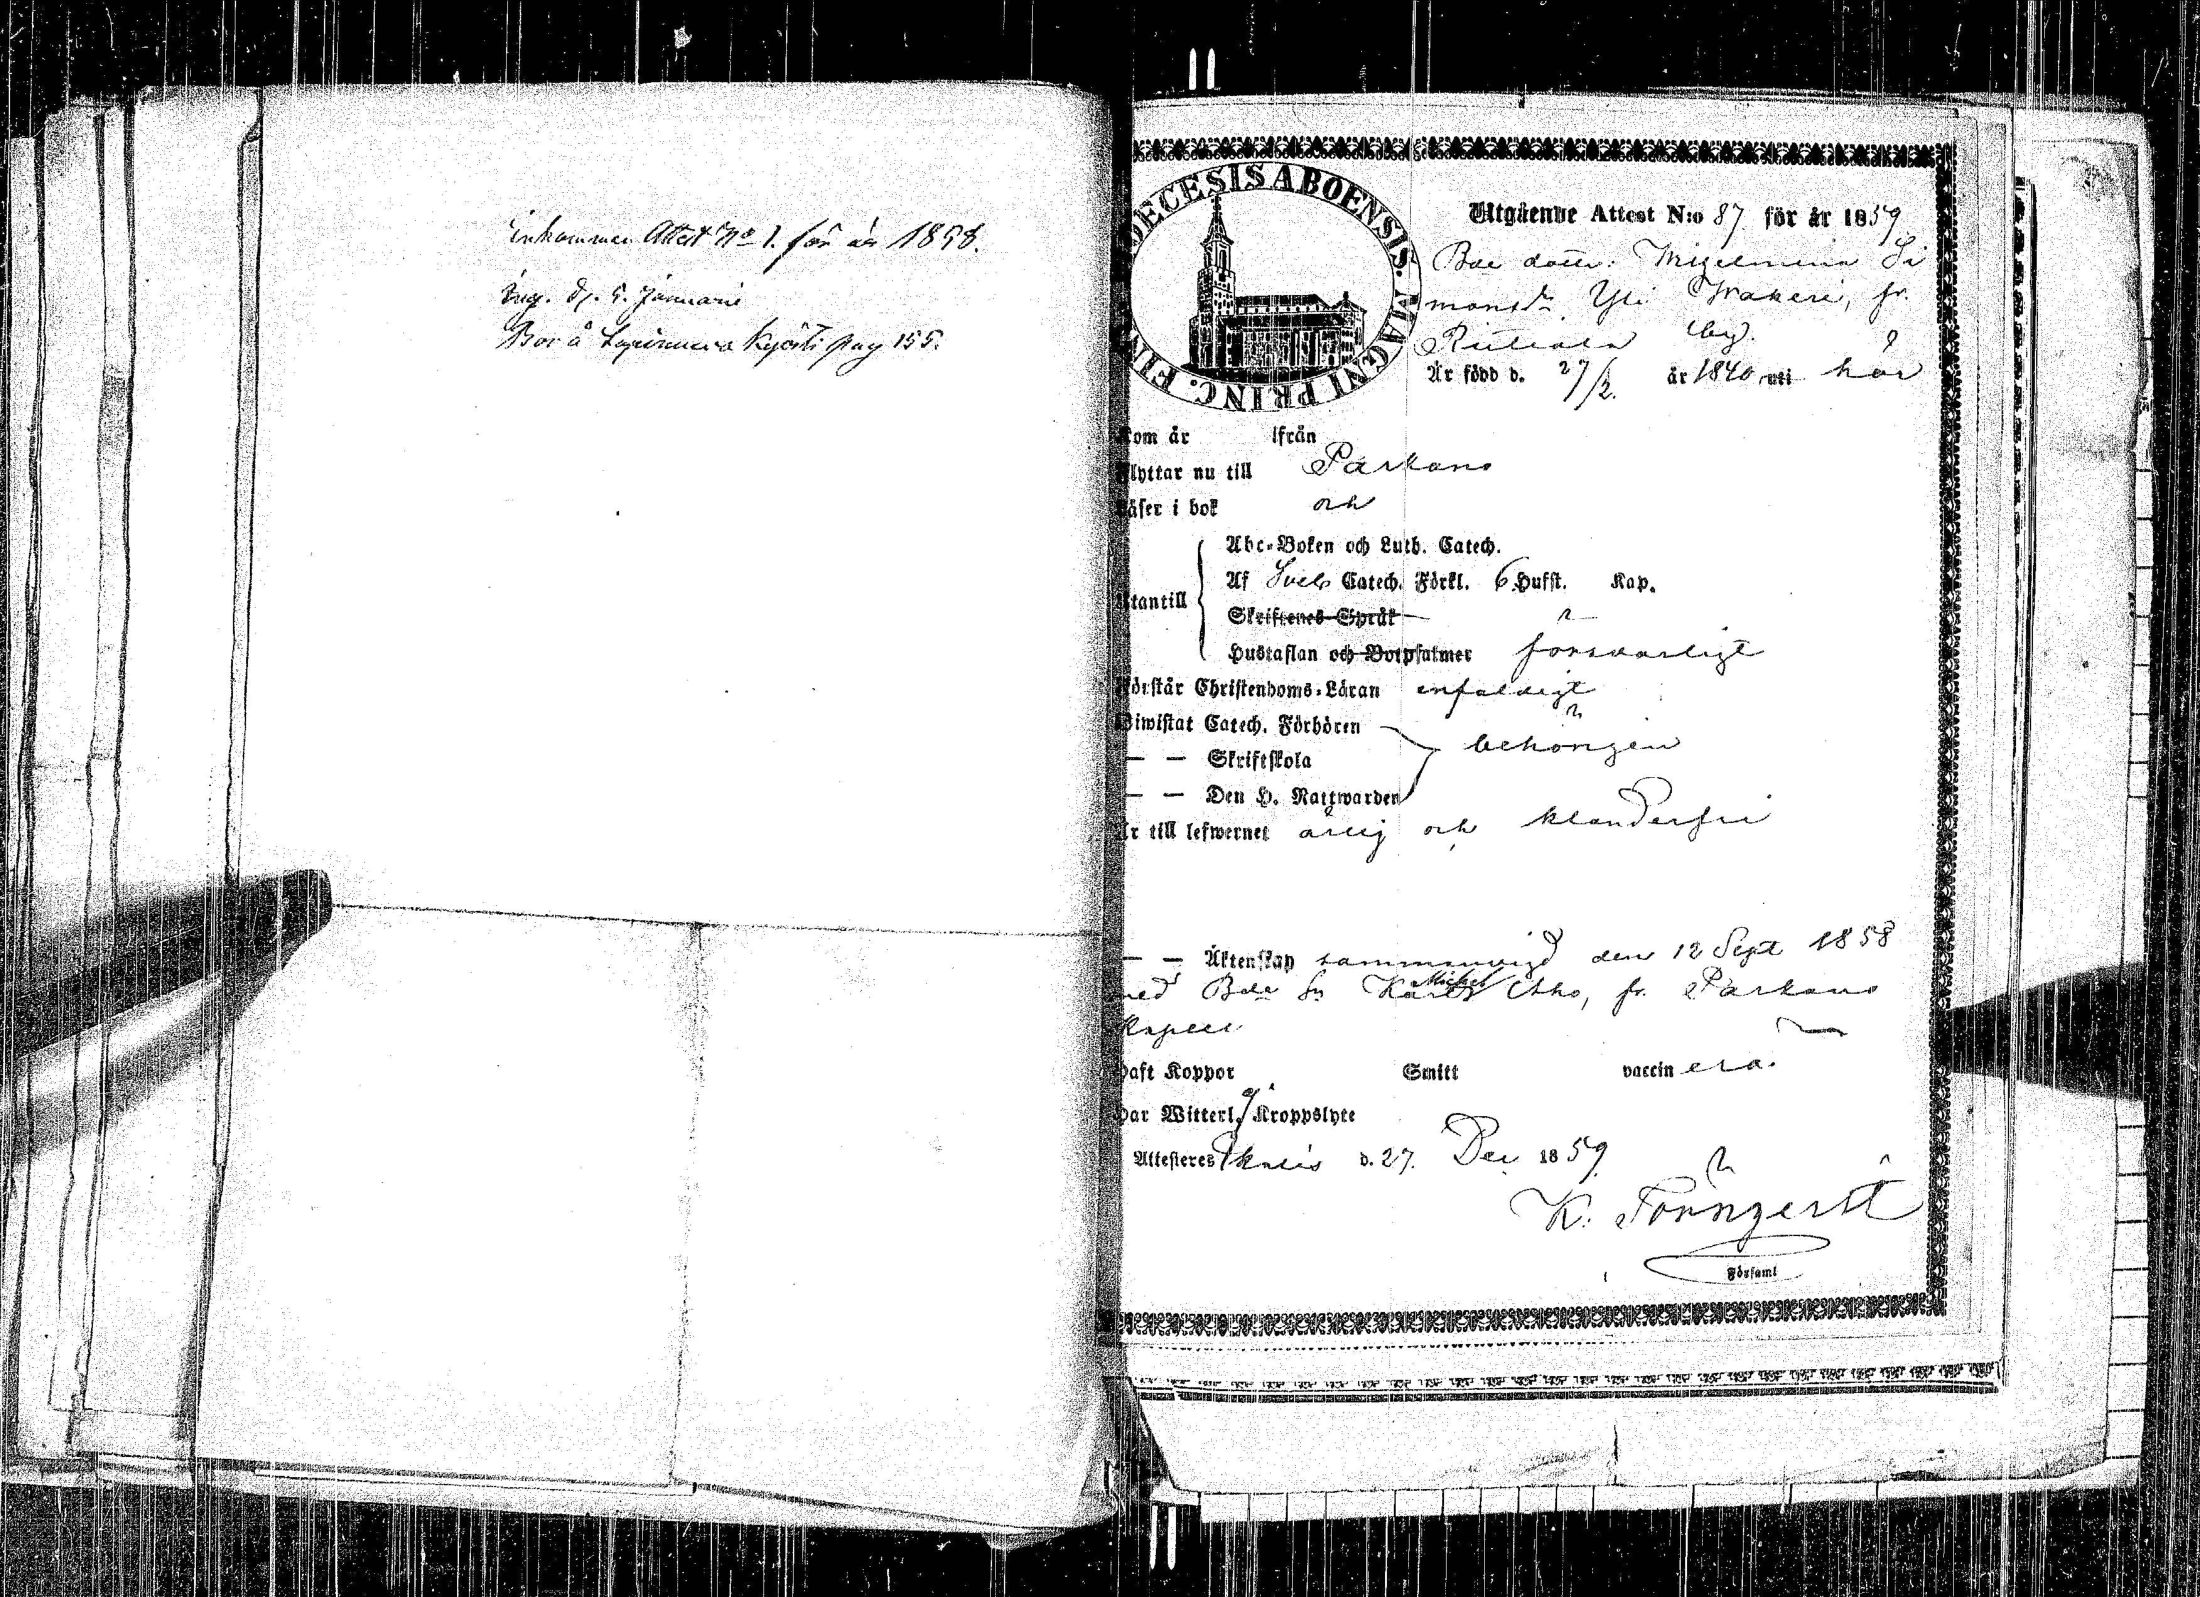 Inkommen Attest No 1. för år 1858.
Ing. d. 5. Januarii
Bor å Kyösti pag 155.
DECESIS ABOENSIS. MAGNI PRINC. FIN
Utgående Attest N:o 87. för år 1859
Bde dottr: Wilhelmina Si
monsdr. Yli Wakeri, fr.
by.
Är född d. 27/2. år 1840 uti här
Kom år ifrån
Flyttar nu till Parkano
Läser i bok och
Abc-Boken och Luth. Catech.
Af Sveb Catech. Förkl. 6 Hufst. Kap.
Utantill
Skriftenes Språk
Hustaflan och Botpsalmer försvarligt
Förstår Christendoms-Läran enfaldigt
Biwistat Catech. Förhören
behörigen
— — Skriftskola
— — Den H. Nattwarden
Är till lefwernet ärlig och klanderfri
— — Äktenskap sammanvigd den 12 Sept 1858
med Bde Sn Karl Michel Aho, fr. Parkano
Kapell
Haft Koppor Smitt vaccinerad.
Har Witterl. ej Kroppslyte
Attesteres Ikalis d. 27. Dec 1859.
K. Törnqvist
Församl